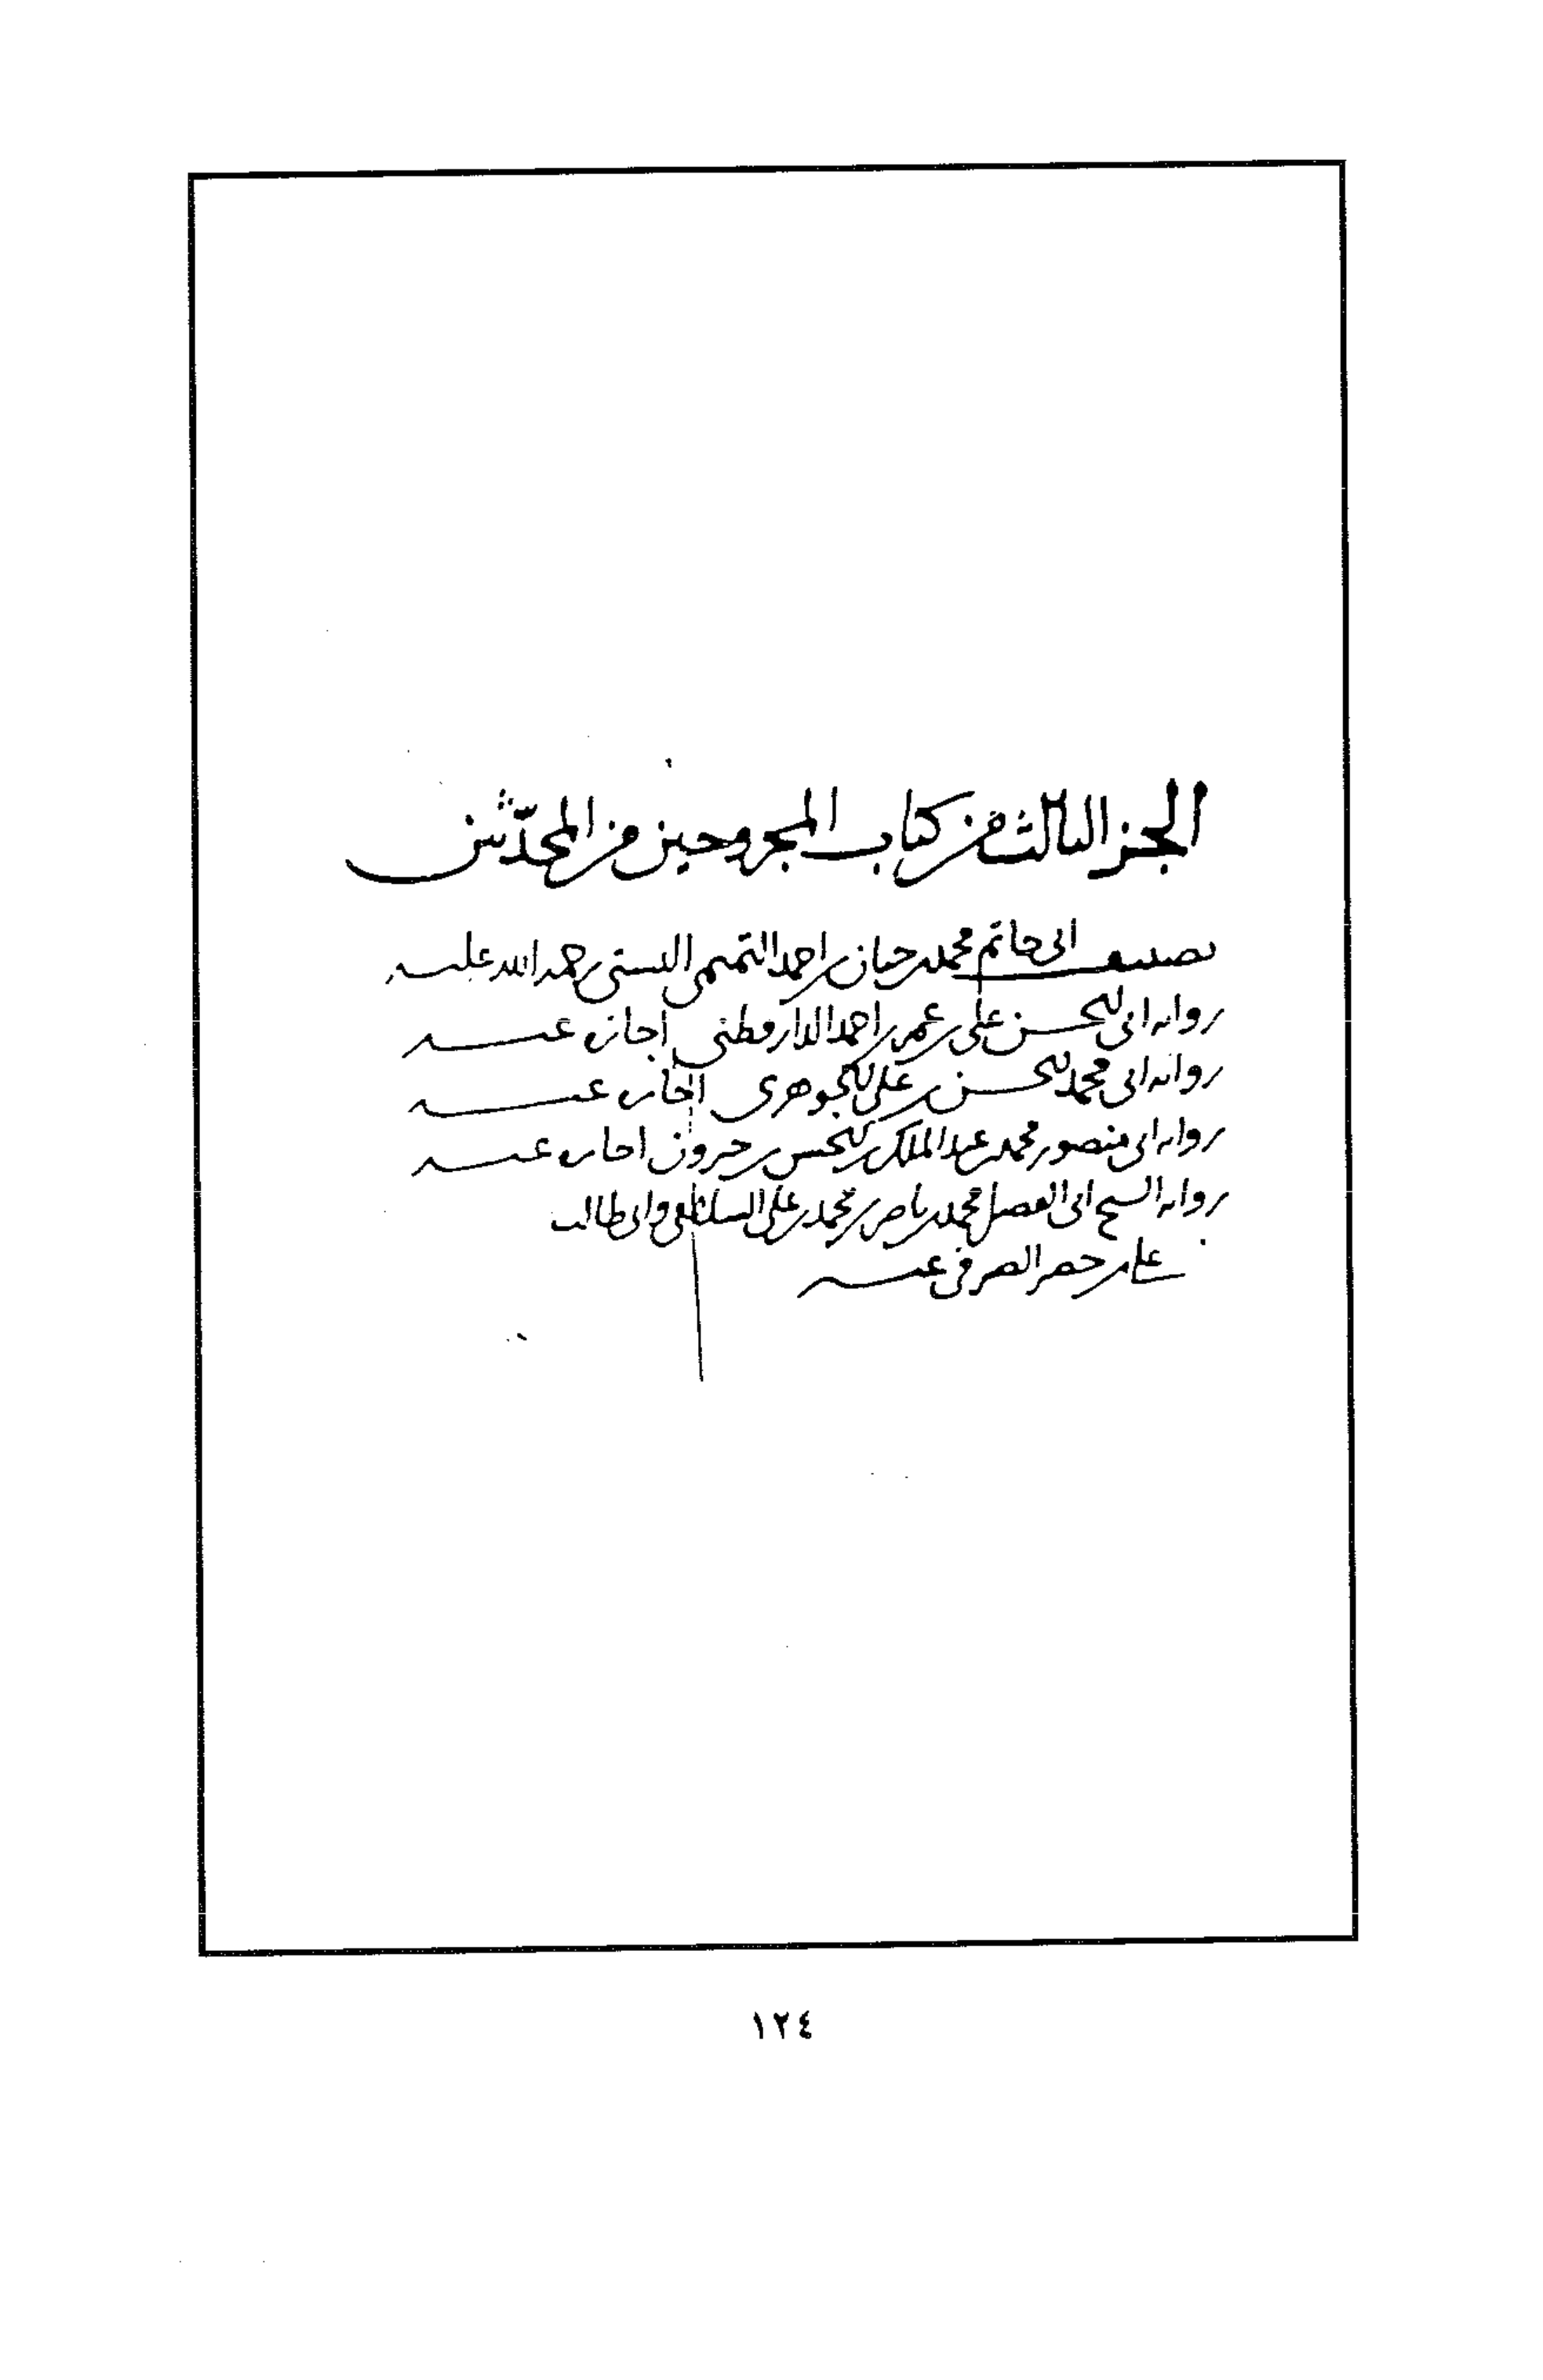 الجزء الثالث من كتاب المجروحين من المحدّثين
تصنيف ابى حاتم محمد بن حبان بن احمد التميمى البستى رحمه الله عليه
روايه ابى الحسن على بن عمر بن احمد الدارقطنى اجازه عنه
روايه ابى محمد الحسن بن على الجوهرى اجازه عنه
روايه ابى منصور محمد بن عبد الملك بن الحسن بن خيرون اجازه عنه
روايه الشيخ ابى الفضل محمد بن ناصر بن محمد بن على السلامى وابى طالب
على بن الصيرفى عنه
١٢٤